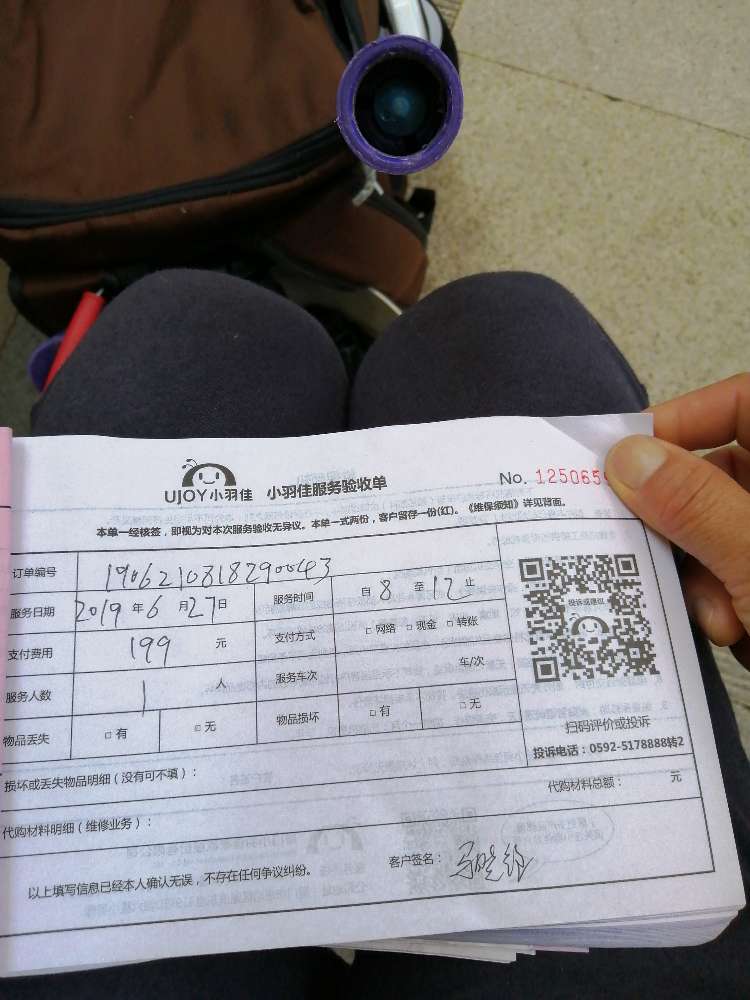 UJOY小羽佳 小羽佳服务验收单 No. 125065
本单一经核签，即视为对本次服务验收无异议。本单一式两份，客户留存一份(红)。《维保须知》详见背面。
订单编号 1906210818290043
服务日期 2019年6月27日 服务时间 自8至12止
支付费用 199 元 支付方式 □网络 □现金 □转账
服务人数 1 人 服务车次 车/次
物品丢失 □有 □无 物品损坏 □有 □无
投诉或建议
扫码评价或投诉
投诉电话：0592-5178888转2
损坏或丢失物品明细（没有可不填）：
代购材料明细（维修业务）： 代购材料总额： 元
以上填写信息已经本人确认无误，不存在任何争议纠纷。 客户签名：